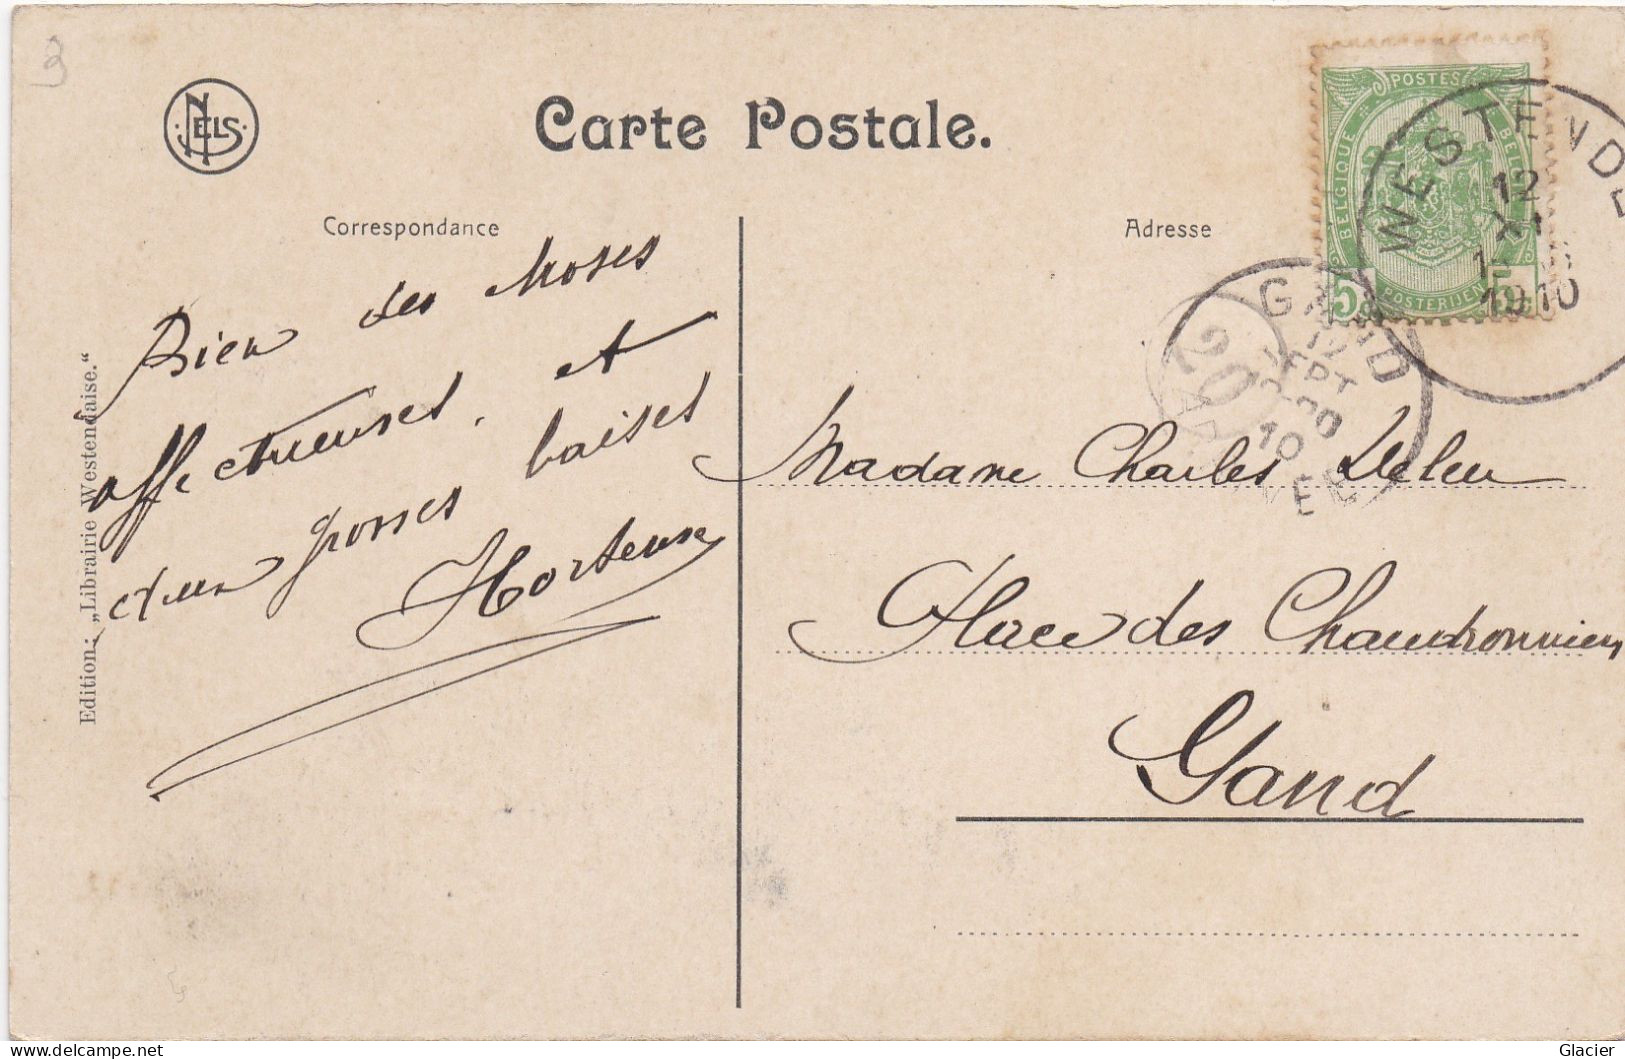 3
NELS
Carte Postale.
Correspondance
Adresse
POSTES
BELGIQUE
POSTERIJEN
5
WESTENDE
12
1910
GAND
12
SEPT
10
20
Bien des choses
affectueuses et
baises
Hortense
Edition: „Librairie Westendaise."
Madame Charles Deleu
Place des Chaudronniers
Gand
delcampe.net
Glacier